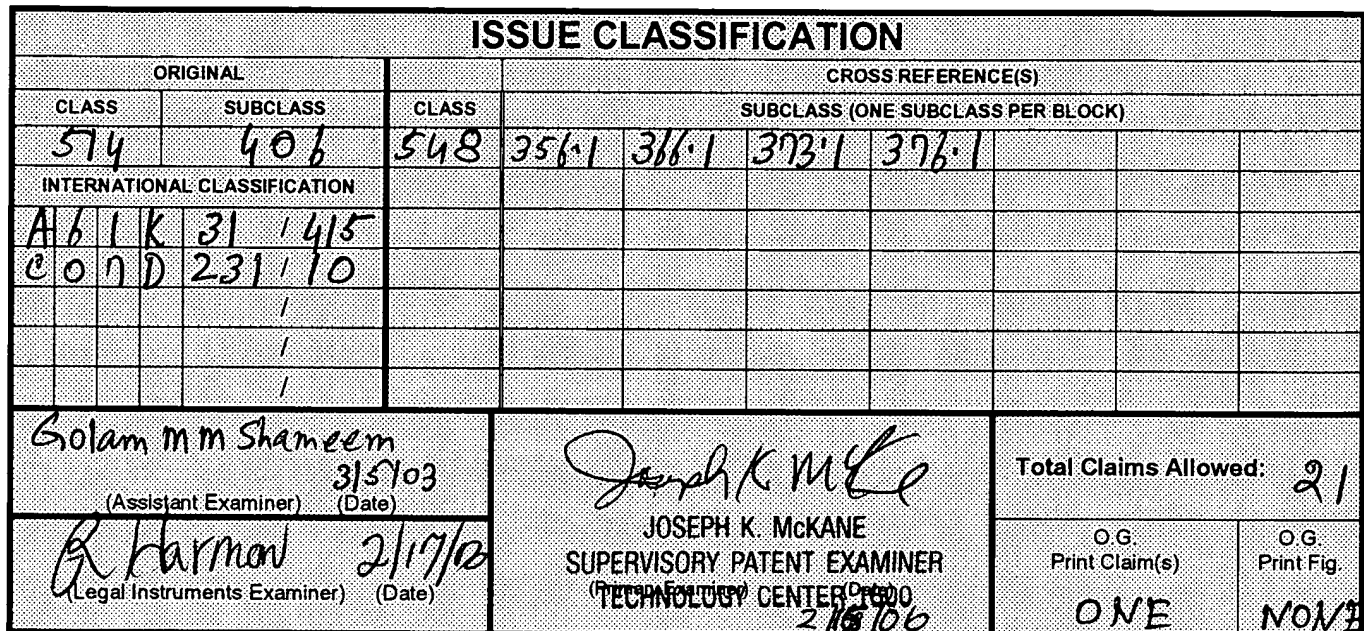 ISSUE CLASSIFICATION
ORIGINAL CROSS REFERENCE(S)
CLASS SUBCLASS CLASS SUBCLASS (ONE SUBCLASS PER BLOCK)
514 406 548 356.1 366.1 373.1 376.1
INTERNATIONAL CLASSIFICATION
A 6 1 K 31 / 415
C 0 7 D 231 / 10
/
/
/
Golam m m Shameem
3/5/03
(Assistant Examiner) (Date)
R Harmon 2/17/06
(Legal Instruments Examiner) (Date)
Joseph K McKane
JOSEPH K. McKANE
SUPERVISORY PATENT EXAMINER
(Primary Examiner) (Date)
TECHNOLOGY CENTER 1600
Total Claims Allowed: 21
O.G.
Print Claim(s)
ONE
O.G.
Print Fig.
NONE